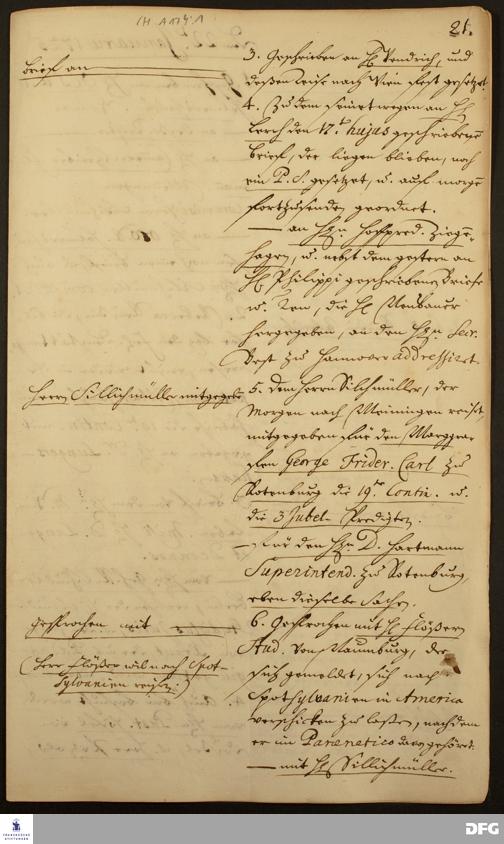 21.
Brief an
3. Geschrieben an H. Hendrich, und
deßen reise nach Wien fest gesetzet.
4. Zu dem seinetwegen an H.
Lerch den 17.t hujus geschriebenen
Brief, der liegen blieben, noch
ein P. S. gesetzet, u. auf morgen
fortzusenden geordnet.
— an H.n Hoffpred. Ziegen-
hagen, u. nebst dem gestern an
H. Philippi geschriebenen Briefe
u. die H. Neubauer
hergegeben, an den H.n Secr.
Best zu Hannover addressiret.
Herrn Sillichmüller mitgegeben
5. dem Herrn Silchmüller, der
Morgen nach Meiningen reiset,
mitgegeben für den Marggra-
fen George Frider. Carl zu
Rotenburg die 19.te Contin. u.
die 3 Jubel-Predigten.
— für den H.n D. Hartmann
Superintend. zu Rotenburg
eben dieselbe Sachen.
gesprochen mit
(Herr Flößer will nach Spot-
sylvanien reisen.)
6. Gesprochen mit H. Flößern
Stud. von Naumburg, der
sich gemeldet, sich nach
Spotsylvanien in America
verschicken zu laßen, nachdem
er im Paraenetico davon gehöret.
— mit H. Sillichmüller.
FRANCKESCHE
STIFTUNGEN
DFG